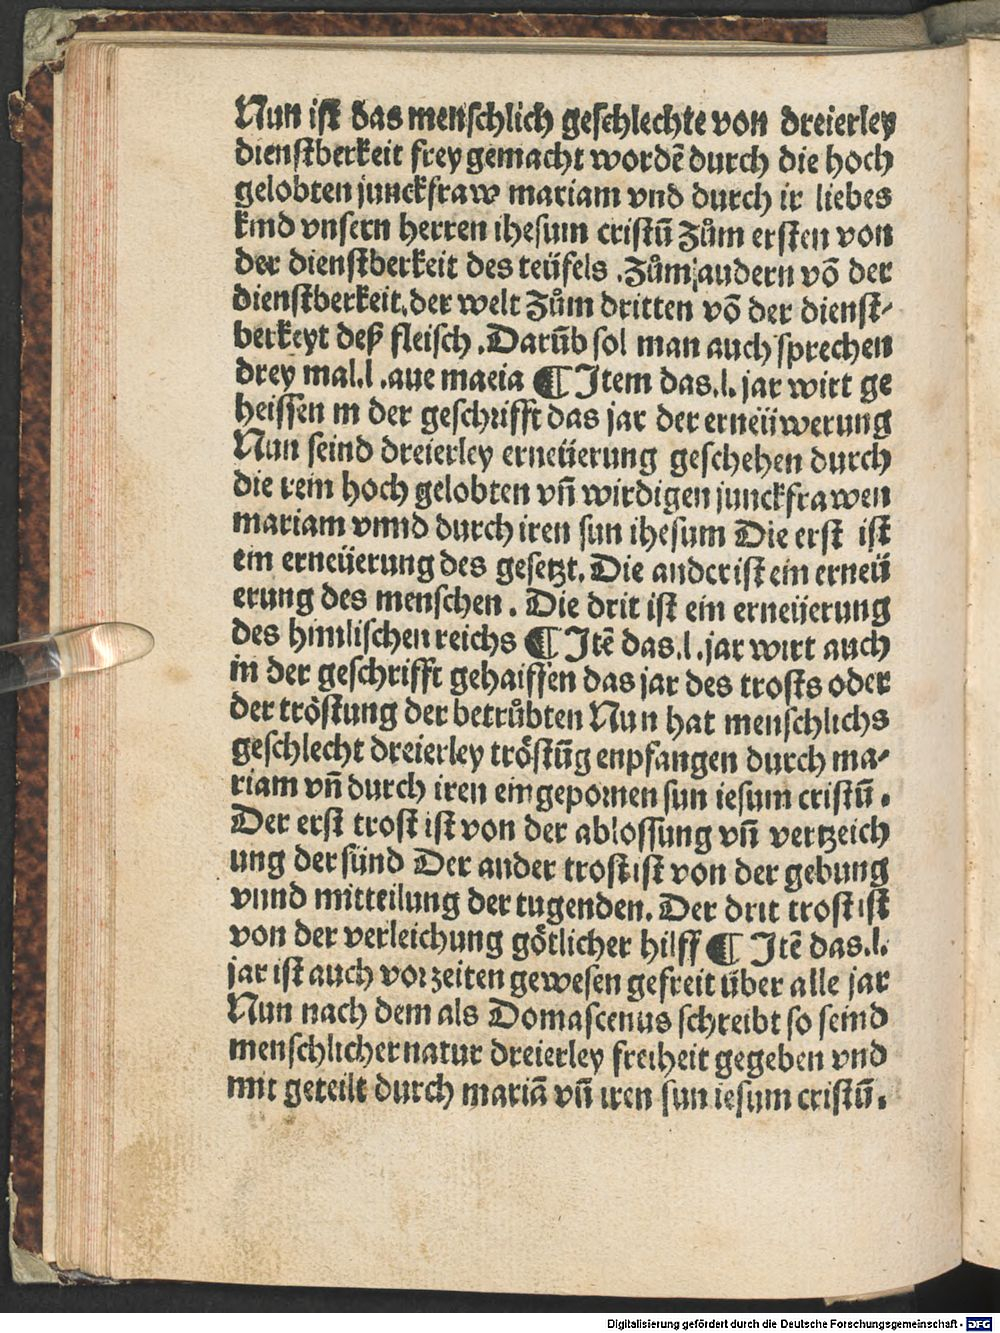 Nun ist das menschlich geschlechte von dreierley
dienstberkeit frey gemacht wordē durch die hoch
gelobten junckfraw mariam vnd durch ir liebes
kind vnsern herren ihesum cristū Zům ersten von
der dienstberkeit des teüfels . Zům andern vō der
dienstberkeit. der welt Zům dritten vō der dienst-
berkeyt deß fleisch . Darūb sol man auch sprechen
drey mal .l. aue maeia ¶ Item das .l. jar wirt ge
heissen in der geschrifft das jar der erneüwerung
Nun seind dreierley erneüerung geschehen durch
die rein hoch gelobten vñ wirdigen junckfrawen
mariam vnnd durch iren sun ihesum Die erst ist
ein erneüerung des gesetzt. Die ander ist ein erneü
erung des menschen . Die drit ist ein erneüerung
des himlischen reichs ¶ Itē das .l. jar wirt auch
in der geschrifft gehaissen das jar des trosts oder
der tröstung der betrůbten Nun hat menschlichs
geschlecht dreierley tröstūg enpfangen durch ma-
riam vñ durch iren eingepornen sun iesum cristū .
Der erst trost ist von der ablossung vñ vertzeich
ung der sünd Der ander trost ist von der gebung
vnnd mitteilung der tugenden. Der drit trost ist
von der verleichung götlicher hilff ¶ Itē das .l.
jar ist auch vorzeiten gewesen gefreit über alle jar
Nun nach dem als Domascenus schreibt so seind
menschlicher natur dreierley freiheit gegeben vnd
mit geteilt durch mariā vñ iren sun iesum cristū .
Digitalisierung gefördert durch die Deutsche Forschungsgemeinschaft - DFG